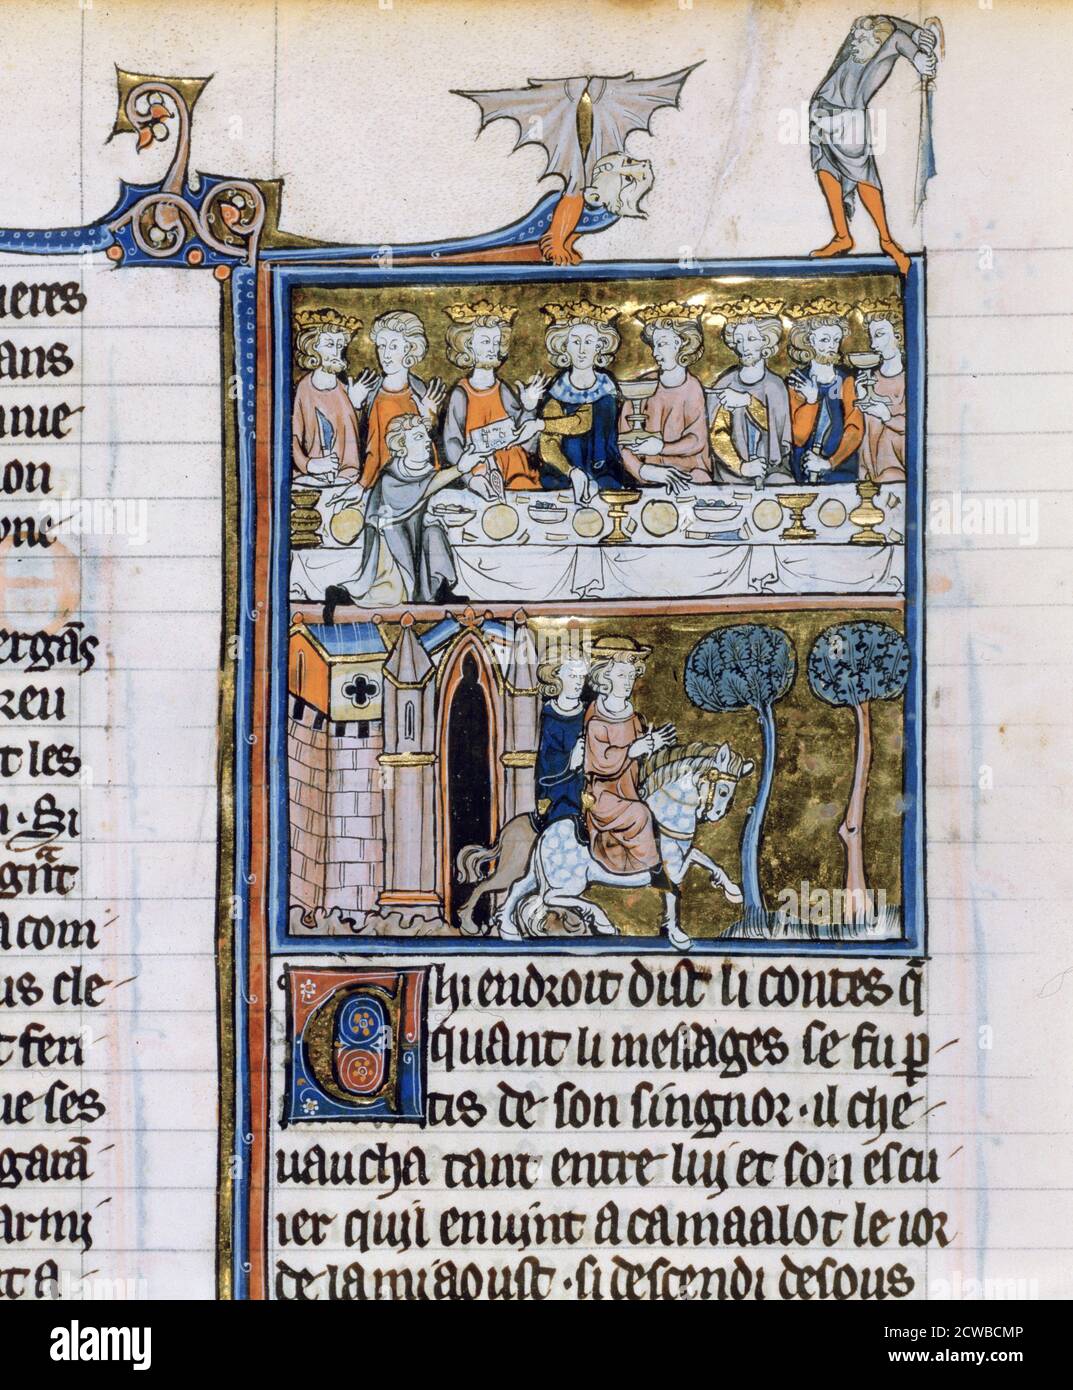 ueres
ans
nnie
yne
ergãs
reu
t les
gñt
a com
us cle-
t feri
ue ses
garã-
armi
t a
Chi endroit dist li contes q̃
quant li messages se fu p
tis de son singnor · il che-
uaucha tant entre luy et son escu
ier quil en uint a camaalot le ior
de la mi aoust · si descendi desous
alamy
Image ID: 2CWBCMP
www.alamy.com